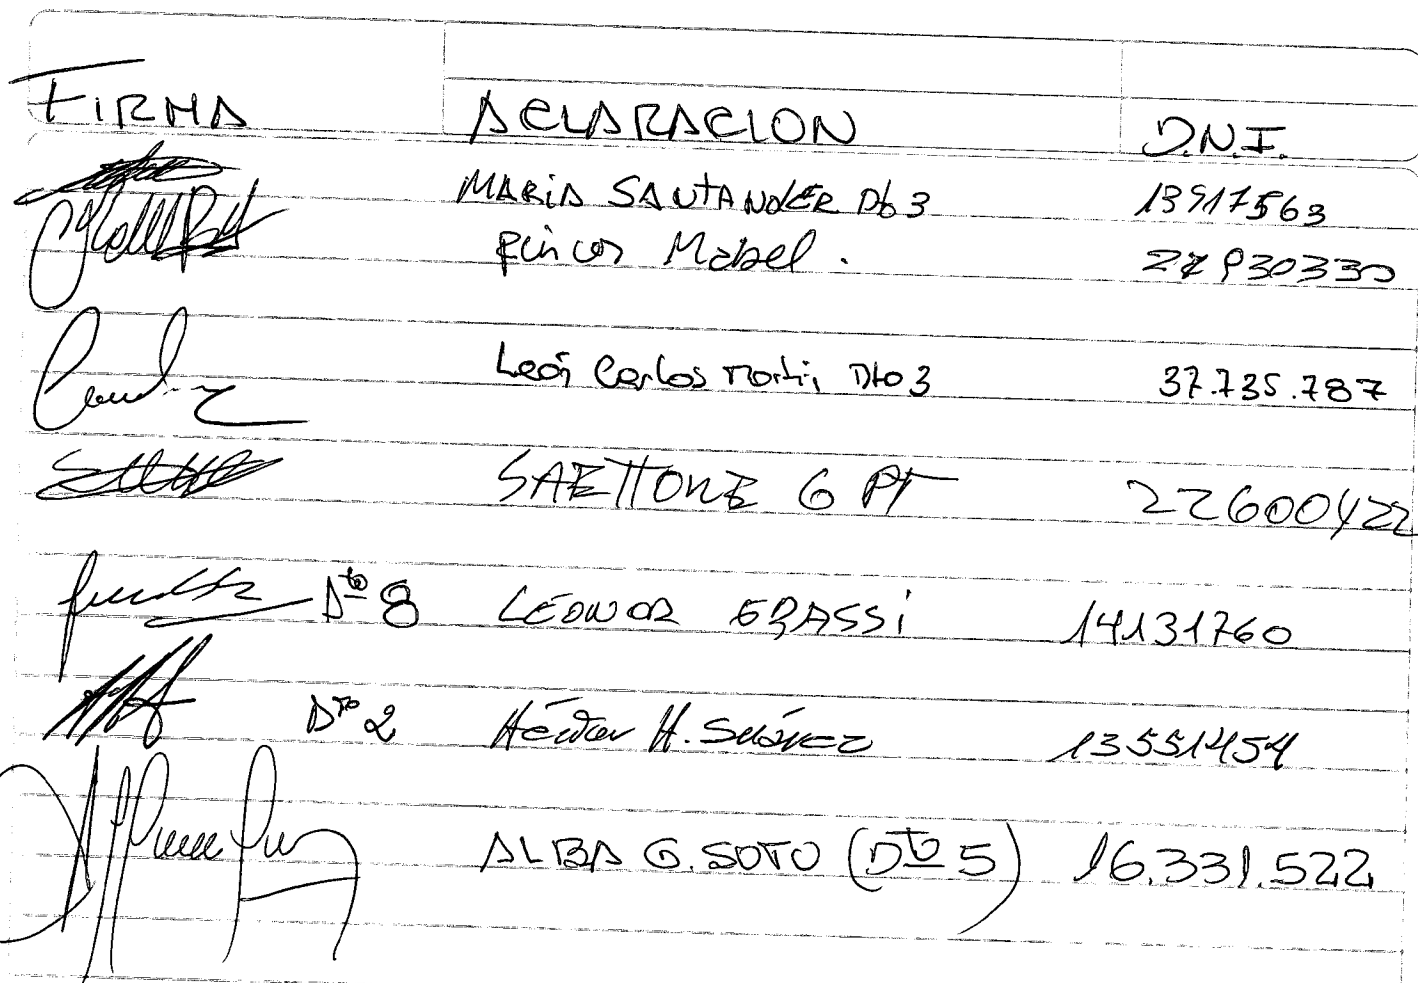 FIRMA ACLARACION D.N.I.
MARIA SANTANDER Dto 3 13917563
Mabel. 27930330
León Carlos Martin Dto 3 37.735.787
SAETTONE 6 PT 22600422
Dto 8 LEONOR GRASSI 14131760
Dto 2 Héctor H. Suárez 13551454
ALBA G. SOTO (Dto 5) 16.331.522